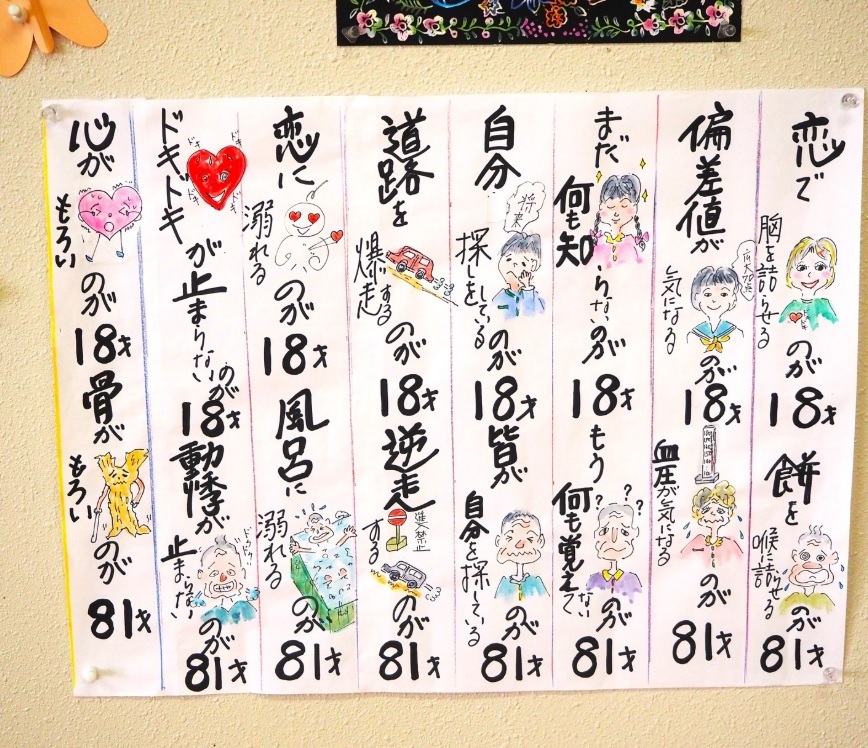 恋で胸を詰らせるのが18才
餅を喉に詰らせるのが81才
偏差値が気になるのが18才
血圧が気になるのが81才
まだ何も知らないのが18才
もう何も覚えてないのが81才
???
自分探しをしているのが18才
将来
皆が自分を探しているのが81才
道路を爆走するのが18才
逆走するのが81才
恋に溺れるのが18才
風呂に溺れるのが81才
ドキドキが止まらないのが18才
動悸が止まらないのが81才
心がもろいのが18才
骨がもろいのが81才